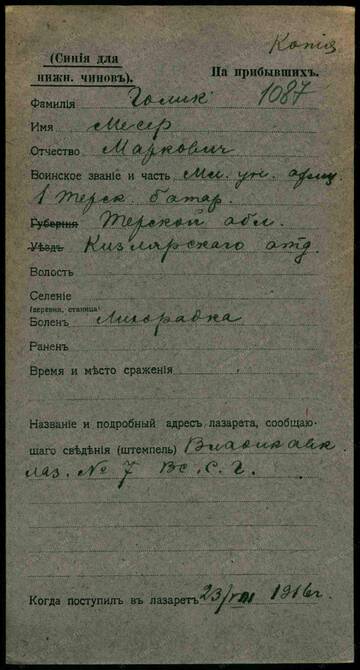 Копія
(Синія для
нижн. чиновъ).
На прибывшихъ.
Фамилія Голик 1087
Имя Месер
Отчество Маркович
Воинское званіе и часть Мл. ун. офиц
1 Терск. батар.
Губернія Терской обл.
Уѣздъ Кизлярскаго отд.
Волость
Селеніе
(деревня, станица)
Боленъ Лихорадка
Раненъ
Время и мѣсто сраженія
Названіе и подробный адресъ лазарета, сообщаю-
щаго свѣдѣнія (штемпель) Владикавк
лаз. № 7 Вс. С. Г.
Когда поступилъ въ лазаретъ 23/VIII 1916г.